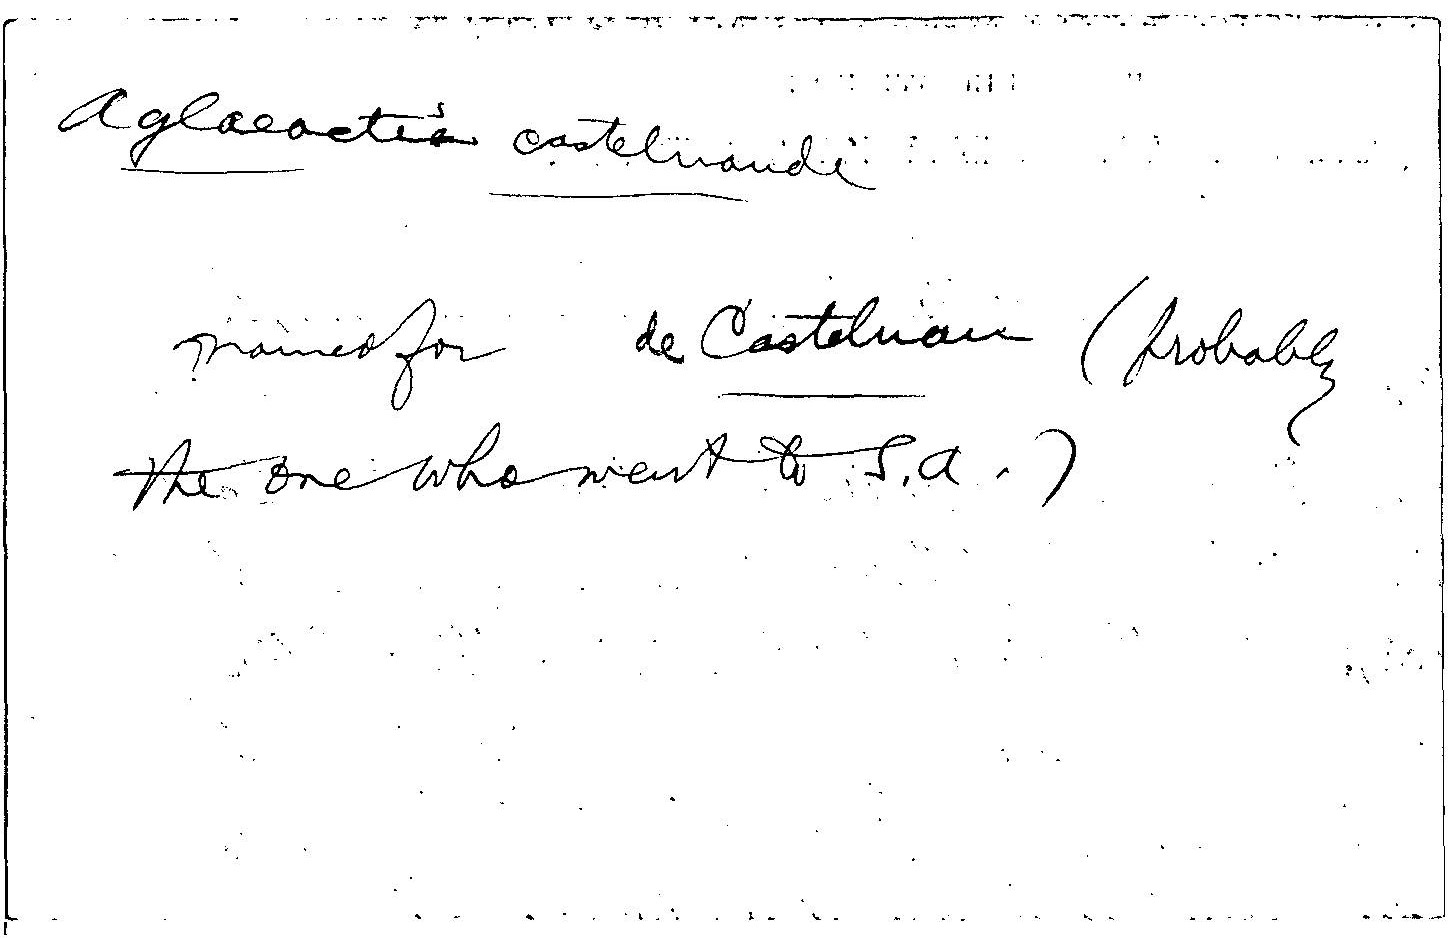 Aglaeactis castelnaudi
named for de Castelnau (probably
the one who went to S.A.)